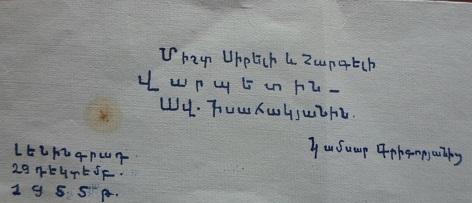 Միշտ Սիրելի և Հարգելի
Վարպետին –
Ավ. Իսահակյանին.
Կամսար Գրիգորյանից
Լենինգրադ.
29 դեկտեմբ.
1955 թ.